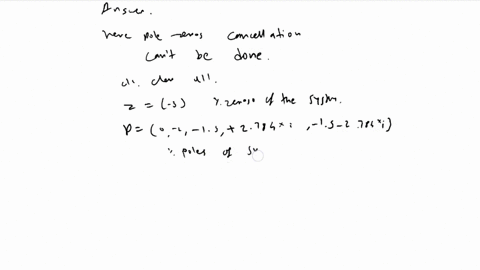 Answer.
here pole zeros cancellation
can't be done.
clc. clear all.
z = (-5) % zeros of the system.
P = (0, -2, -1.5, + 2.784*i, -1.5-2.784*i)
% poles of sy